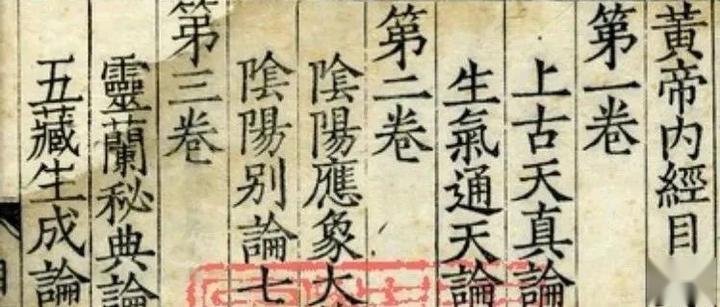 黃帝內經目
第一卷
上古天真論
生氣通天論
第二卷
陰陽應象大
陰陽别論七
第三卷
靈蘭秘典論
五藏生成論